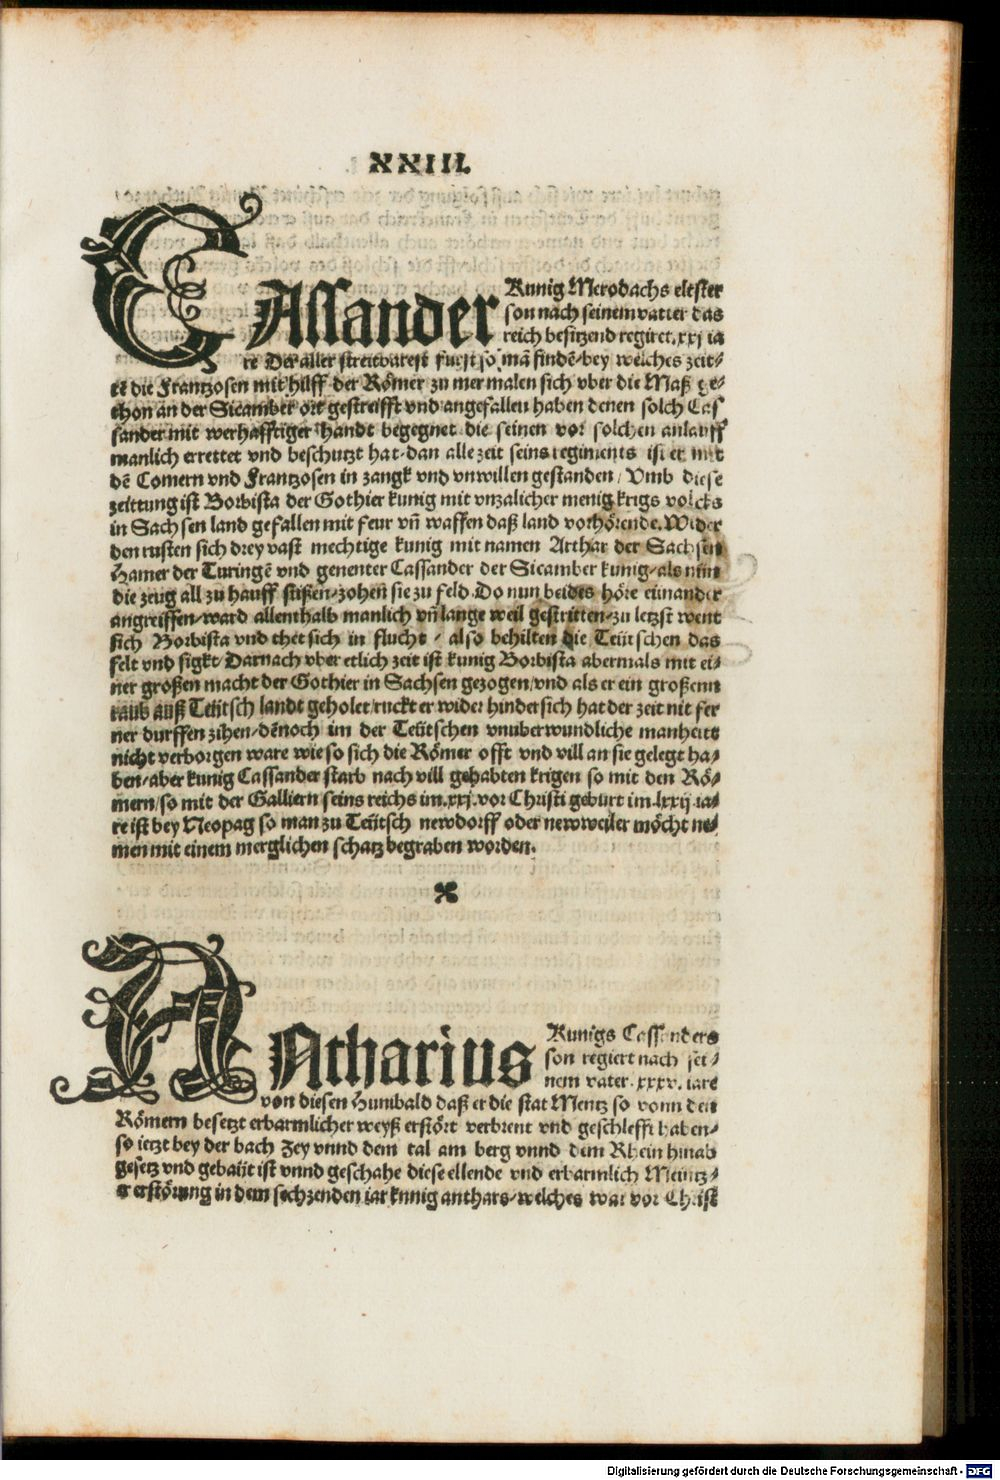 XXIII.
CAssander Kunig Merodachs eltster
son nach seinem vatter das
reich besitzend regiret. xxj ia
re Der aller streitbarest furst so mā findē/bey welches zeit/
tē die Frantzosen mit hilff der Römer zu mer malen sich vber die Maß ge/
thon an der Sicamber ort gestreifft vnd angefallen haben denen solch Cas
sander mit werhafftiger handt begegnet die seinen vor solchen anlauff
manlich errettet vnd beschutzt hat/dan alle zeit seins regiments ist er mit
dē Comern vnd Frantzosen in zangk vnd vnwillen gestanden/Vmb diese
zeittung ist Borbista der Gothier kunig mit vnzalicher menig krigs volcks
in Sachsen land gefallen mit feur vñ waffen daß land vorhörende. Wider
den rusten sich drey vast mechtige kunig mit namen Arthar der Sachsen
Hamer der Turingē vnd genenter Cassander der Sicamber kunig/als nun
die zeug all zu hauff stißen/zohen sie zu feld. Do nun beides höre einander
angreiffen/ward allenthalb manlich vñ lange weil gestritten/zu letzst went
sich Borbista vnd thet sich in flucht/also behilten die Teütschen das
felt vnd sigkt/Darnach vber etlich zeit ist kunig Borbista abermals mit ei/
ner großen macht der Gothier in Sachsen gezogen/vnd als er ein großenn
raub auß Teütsch landt geholet/ruckt er wider hindersich hat der zeit nit fer
ner durffen zihen/dēnoch im der Teütschen vnuberwundliche manheit
nicht verborgen ware wie so sich die Römer offt vnd vill an sie gelegt ha/
ben/aber kunig Cassander starb nach vill gehabten krigen so mit den Rö/
mern/so mit der Galliern seins reichs im. xxj. vor Christi geburt im. lxxij. ia/
re ist bey Neopag so man zu Teütsch newdorff oder newweiler möcht ne/
men mit einem merglichen schatz begraben worden.
ANtharius Kunigs Cassanders
son regiert nach sei/
nem vater. xxxv. iare
von diesen Hunibald daß er die stat Mentz so vonn den
Römern besetzt erbarmlicher weyß erstört verbrent vnd geschlefft haben/
so ietzt bey der bach Zey vnnd dem tal am berg vnnd dem Rhein hinab
gesetz vnd gebaüt ist vnnd geschahe diese ellende vnd erbarmlich Meintz/
er erstörung in dem sechzenden iar kunig anthars/welches war vor Christ
Digitalisierung gefördert durch die Deutsche Forschungsgemeinschaft - DFG